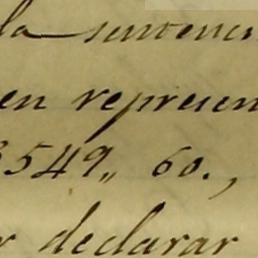 la sentenci
en represen
3549,, 60.,
r declarar